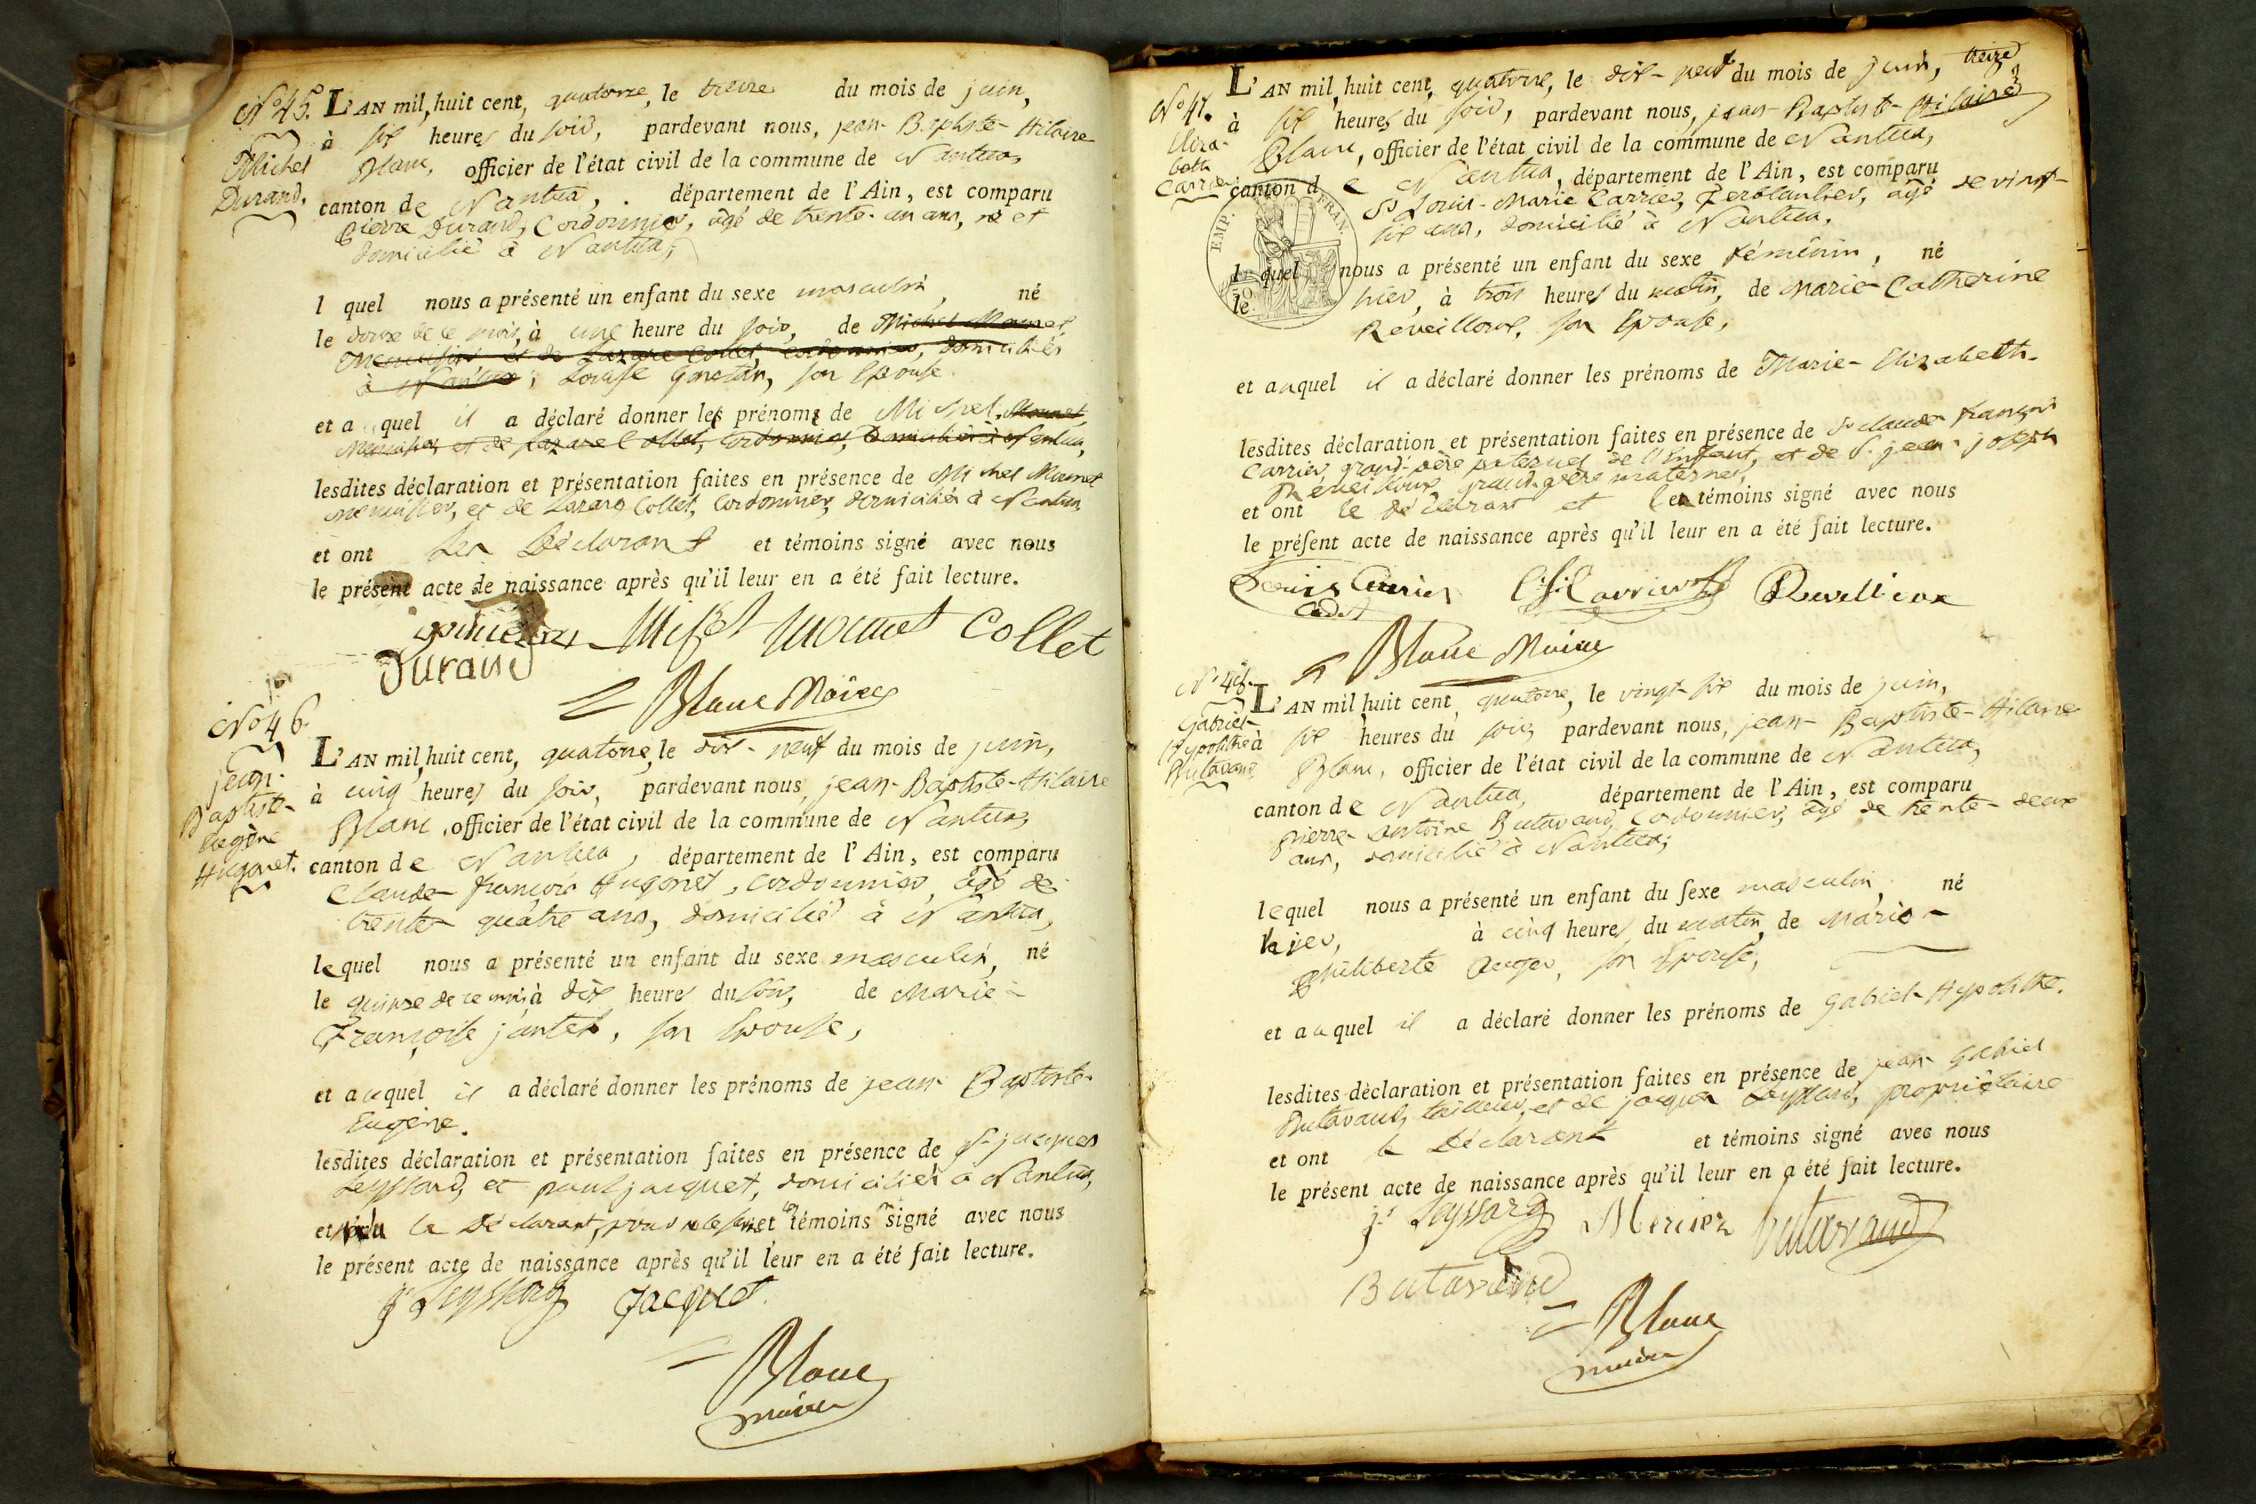 N.o 45.
Michel
Durand.
L'AN mil, huit cent, quatorze, le treize du mois de juin,
à six heures du soir, pardevant nous, jean-Baptiste-Hilaire
Blanc, officier de l'état civil de la commune de Nantua,
canton de Nantua, département de l'Ain, est comparu
Pierre Durand, Cordonnier, âgé de trente-un ans, né et
domicilié à Nantua,
l quel nous a présenté un enfant du sexe masculin, né
le douze de ce mois, à une heure du soir, de Michel Mounet
Menuisier et de Lazare Collet, cordonnier, domiciliés
à Nantua, Louise son Epouse
et a quel il a déclaré donner les prénoms de Michel. Mounet
Menuisier, et de Lazare Collet, Cordonnier, Domiciliés à Nantua,
lesdites déclaration et présentation faites en présence de Michel Mounet
menuisier, et de Lazare Collet, Cordonnier, domiciliés à Nantua
et ont Les Déclarant et témoins signé avec nous
le présent acte de naissance après qu'il leur en a été fait lecture.
Michel Mounet Collet
Durand
Blanc Maire
N.o 46.
jean-
Baptiste-
Eugène
Hugonet.
L'AN mil, huit cent, quatorze, le dix-neuf du mois de juin,
à cinq heures du soir, pardevant nous, jean-Baptiste-Hilaire
Blanc, officier de l'état civil de la commune de Nantua,
canton de Nantua, département de l'Ain, est comparu
Claude-françois Hugonet, cordonnier, âgé de
trente-quatre ans, domicilié à Nantua,
lequel nous a présenté un enfant du sexe masculin, né
le quinze de ce mois, à dix heures du soir, de Marie-
Françoise jantet, son Epouse,
et auquel il a déclaré donner les prénoms de jean-Baptiste-
Eugène.
lesdites déclaration et présentation faites en présence de Sr. jacques
Leyssard, et paul jacquet, domiciliés à Nantua,
et le Déclarant, et les témoins signé avec nous
le présent acte de naissance après qu'il leur en a été fait lecture.
Jes Leyssard Jacquet
Blanc
maire
N.o 47.
Eliza-
beth
Carrier
L'AN mil, huit cent, quatorze, le dix-neuf du mois de juin, treize
3
à six heures du soir, pardevant nous, jean-Baptiste-Hilaire
Blanc, officier de l'état civil de la commune de Nantua,
canton d e Nantua, département de l'Ain, est comparu
Sr. Louis-Marie Carrier, Ferblantier, âgé de vingt-
six ans, domicilié à Nantua,
EMP. FRAN.
l quel nous a présenté un enfant du sexe féminin, né
le hier, à trois heures du matin, de Marie-Catherine
Réveilloux, son Epouse,
et auquel il a déclaré donner les prénoms de Marie-Elizabeth.
lesdites déclaration et présentation faites en présence de Sr claude-françois
Carrier grand-père paternel de l'Enfant, et de S. jean-joseph
Réveilloux grand-père maternel,
et ont le déclarant et les témoins signé avec nous
le présent acte de naissance après qu'il leur en a été fait lecture.
Louis Carrier C.f. Carrier Reveilloux
Cadet
Blanc Maire
N.o 48.
Gabriel-
Hypolithe
Butavand
L'AN mil huit cent, quatorze, le vingt-six du mois de juin,
à six heures du soir, pardevant nous, jean-Baptiste-Hilaire
Blanc, officier de l'état civil de la commune de Nantua,
canton de Nantua, département de l'Ain, est comparu
pierre-Antoine Butavand, Cordonnier, âgé de trente-deux
ans, domicilié à Nantua,
lequel nous a présenté un enfant du sexe masculin, né
hier, à cinq heures du matin, de Marie-
philiberte Auger, son Epouse,
et auquel il a déclaré donner les prénoms de Gabriel-Hypolithe.
lesdites déclaration et présentation faites en présence de jean Gabriel
Butavand, tailleur, et de jacques Leyssard, propriétaire
et ont le Déclarant et témoins signé avec nous
le présent acte de naissance après qu'il leur en a été fait lecture.
Jes Leyssard Mercier Butavand
Butavand
Blanc
maire